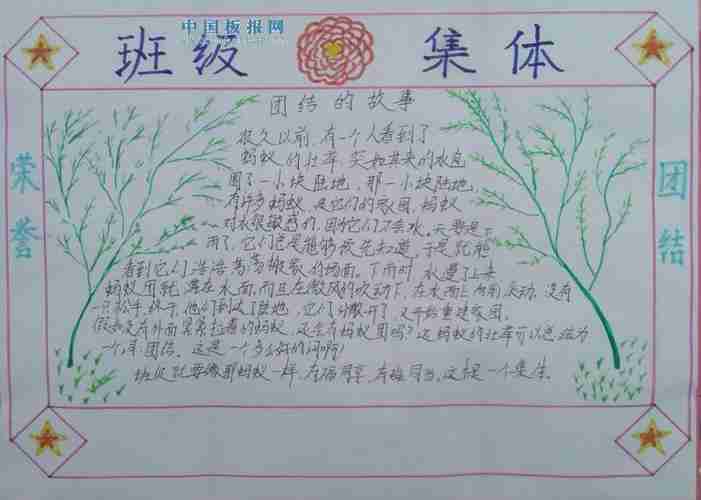 中国板报网
班级 集体
荣誉
团结
团结的故事
很久以前,有一个人看到了
蚂蚁的壮举,突如其来的水包
围了一小块陆地,那一小块陆地,
有许多蚂蚁,是它们的家园,蚂蚁
对水很敏感的,因为它们不会水。天要是下
雨了,它们总是能够预先知道,于是就能
看到它们浩浩荡荡搬家的场面。下雨时,水漫了上来
蚂蚁团就漂在水面,而且在微风的吹动下,在水面上向前滚动,没有
一只松手,终于,他们到达了陆地,它们分散开了,又开始重建家园。
假如没有外面紧紧拉着的蚂蚁,还会有蚂蚁团吗?这蚂蚁的壮举可以总结为
一个词:团结,这是一个多么好的词啊!
班级就要像那蚂蚁一样,有福同享,有难同当,这才是一个集体。